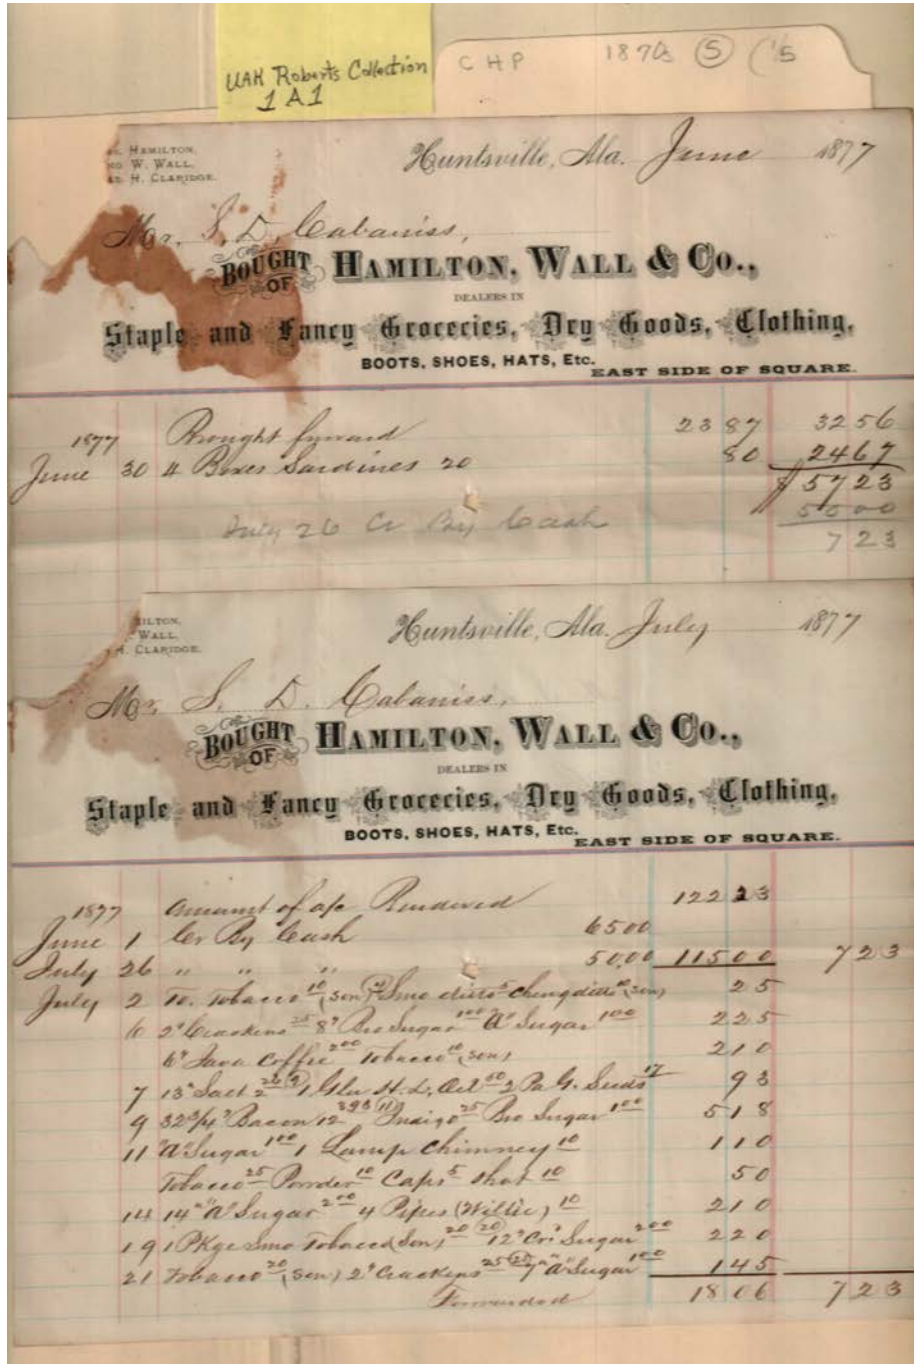 UAH Roberts Collection
1 A 1
CHP 1870s ⑤ (15
HAMILTON,
W. WALL,
H. CLARIDGE.
Huntsville, Ala. June 1877
Mr. S. D. Cabaniss,
BOUGHT OF HAMILTON, WALL & CO.,
DEALERS IN
Staple and Fancy Groceries, Dry Goods, Clothing,
BOOTS, SHOES, HATS, Etc.
EAST SIDE OF SQUARE.
1877 Brought forward 23 87 32 56
June 30 4 Boxes Sardines 20 80 24 67
$ 57 23
July 26 Cr By Cash 50 00
7 23
ILTON,
WALL,
H. CLARIDGE.
Huntsville, Ala. July 1877
Mr. S. D. Cabaniss,
BOUGHT OF HAMILTON, WALL & CO.,
DEALERS IN
Staple and Fancy Groceries, Dry Goods, Clothing,
BOOTS, SHOES, HATS, Etc.
EAST SIDE OF SQUARE.
1877 Amount of a/c Rendered 122 23
June 1 Cr By Cash 65 00
July 26 " " " 50,00 115 00 7 23
July 2 To. Tobacco 10 (son) Smo ditto 5 chewg ditto 10 (son) 25
6 2# Crackers 25 8# Bro Sugar 1 00 "A" Sugar 1 00 2 25
6# Java Coffee 2 00 Tobacco 10 (son) 2 10
7 13# Salt 2 26 1 Gln H. L. Oil 50 2 Pa G. Seeds 17 93
9 32 3/4# Bacon 12 3 93 Indigo 25 Bro Sugar 1 00 5 18
11 "A" Sugar 1 00 1 Lamp Chimney 10 1 10
Tobacco 25 Powder 10 Caps 5 shot 10 50
14 14# "A" Sugar 2 00 4 Pipes (Willie) 10 2 10
19 1 PKge Smo Tobacco (Son) 20 12# Sugar 2 00 2 20
21 Tobacco 20 (son) 2# Crackers 25 7# "A" Sugar 1 00 1 45
Forwarded 18 06 7 23